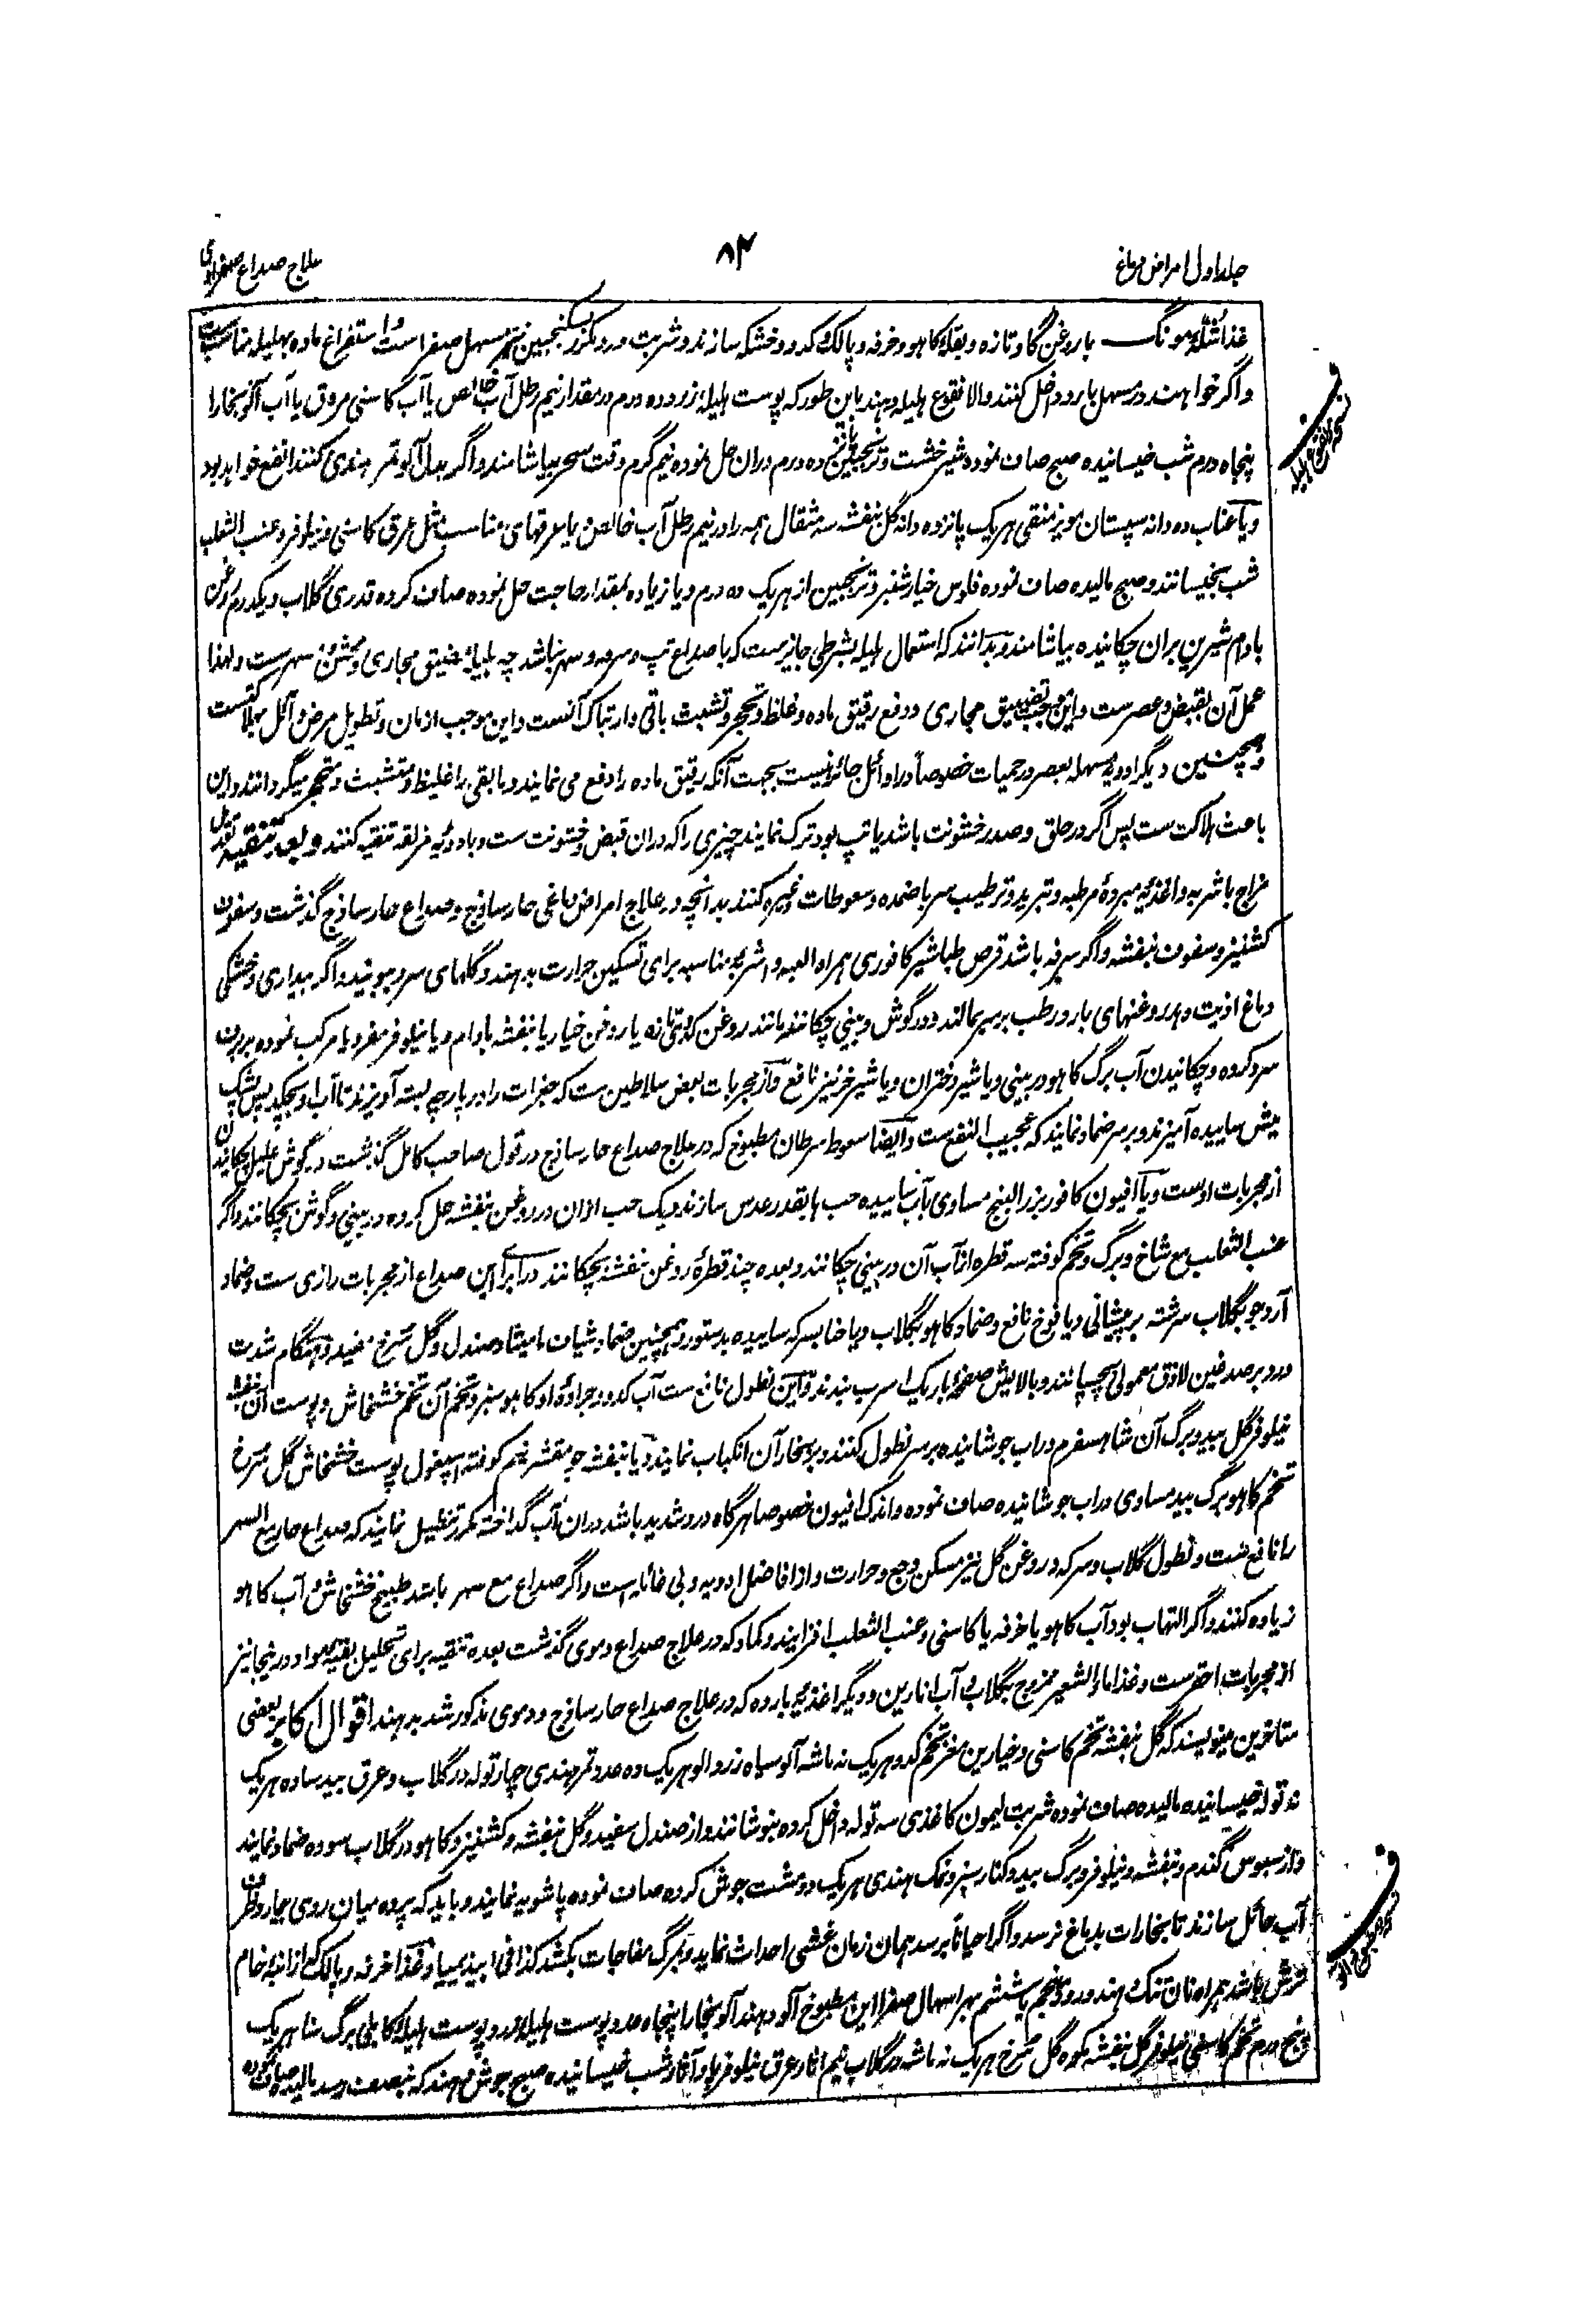 جلد اول امراض دماغ
۸۴
علاج صداع صفراوی
غذا شله مونگ با روغن گاو تازه و بقله کاهو و خرفه و پالک و کدو و خشکه سازند و شربت ورد مکرر سکنجبین مسهل صفراست و استفراغ ماده بهلیله مناسب ست
و اگر خواهند در مسهل بارد داخل کنند والا نقوع هلیله دهند باین طور که پوست هلیلۀ زرد ده درم در مقدار نیم رطل آب خالص یا آب کاسنی مروق یا آب آلو بخارا
پنجاه درم شب خیسانیده صبح صاف نموده شیرخشت و ترنجبین ده درم دران حل نموده نیم گرم وقت سحر بیاشامند و اگر بدل آلو تمر هندی کنند انفع خواهد بود
و یا عناب ده دانه سپستان مویز منقی هریک پانزده دانه گل بنفشه سه مثقال همه را در نیم رطل آب خالص و یا عرقهای مناسب مثل عرق کاسنی و نیلوفر و عنب الثعلب
شب بخیسانند و صبح مالیده صاف نموده فلوس خیارشنبر و ترنجبین از هریک ده درم و یا زیاده بمقدار حاجت حل نموده صاف کرده قدری گلاب و یکدرم روغن
بادام شیرین بران چکانیده بیاشامند و بدانند که استعمال هلیله بشرطی جایزست که با صداع تپ و سرفه و سهر نباشد چه هلیله مضیق مجاری و مخشن و مسهرست و لهذا
عمل آن بقبض و عصرست و این موجب تضییق مجاری و دفع رقیق ماده و غلظ و تحجر و تشبث باقی و ارتباک آنست و این موجب ازمان و تطویل مرض و آئل بهلاکتست
و همچنین دیگر ادویه مسهله بعصر در حمیات خصوصاً در اوائل جائز نیست بجهت آنکه رقیق ماده را دفع می نمایند و مابقی را غلیظ و متشبث و متحجر میگردانند و این
باعث هلاکت ست پس اگر در حلق و صدر خشونت باشد یا تپ بود ترک نمایند چیزی را که دران قبض و خشونت ست و بادویه مزلقه تنقیه کنند و بعد تنقیه تعدیل
مزاج باشربه و اغذیه مبرده مرطبه و تبرید و ترطیب سر باضمده و سعوطات و غیره کنند بدانچه در علاج امراض دماغی حار ساذج و صداع حار ساذج گذشت و سفوف
کشنیز و سفوف بنفشه و اگر سرفه باشد قرص طباشیر کافوری همراه العبه و اشربه مناسبه برای تسکین حرارت بدهند و گلهای سرد ببویند و اگر بیداری و خشکی
دماغ اذیت دهد روغنهای بارد رطب بر سر مالند و در گوش و بینی چکانند مانند روغن کدوی تازه یا روغن خیار یا بنفشه بادام و یا نیلوفر مفرد یا مرکب نموده ببرف
سرد کرده و چکانیدن آب برگ کاهو در بینی و یا شیر دختران و یا شیر خر نیز نافع و از مجربات بعض سلاطین ست که جغرات را در پارچه بسته آویزند تا آب او بچکد پس پشک
میش ساییده آمیزند و بر سر ضماد نمایند که عجیب النفع ست و ایضا سعوط سرطان مطبوخ که در علاج صداع حار ساذج در قول صاحب کامل گذشت در گوش علیل چکانیدن
از مجربات اوست و یا افیون کافور بزرالبنج مساوی بآب ساییده حب ها بقدر عدس سازند و یک حب ازان در روغن بنفشه حل کرده در بینی و گوش بچکانند و اگر
عنب الثعلب مع شاخ و برگ و تخم کوفته سه قطره از آب آن در بینی چکانند و بعده چند قطرۀ روغن بنفشه بچکانند درابرای این صداع از مجربات رازی ست و ضماد
آرد جو بگلاب سرشته بر پیشانی و یافوخ نافع و ضماد کاهو بگلاب و یا حنا بسرکه ساییده بدستور و همچنین ضماد شیاف مامیثا و صندل و گل سرخ مفید و هنگام شدت
درد بر صدغین لازق معمولی چسپانند و بالایش صفحۀ باریک اسرب بندند و این نطول نافع ست آب کدو و جرادۀ او کاهو سبز و تخم آن تخم خشخاش و پوست آن بنفشه
نیلوفر گل بید و برگ آن شاهسفرم دراب جوشانیده بر سر نطول کنند و بر بخار آن انکباب نمایند و یا بنفشه جو مقشر نیم کوفته اسپغول پوست خشخاش گل سرخ
تخم کاهو برگ بید مساوی دراب جوشانیده صاف نموده و اندک افیون خصوصا هرگاه درد شدید باشد دران آب گداخته مکرر تنطیل نمایند که صداع حار مع السهر
را نافع ست و نطول گلاب و سرکه و روغن گل نیز مسکن وجع و حرارت و از افاضل ادویه و بی غائله است و اگر صداع مع سهر باشد طبیخ خشخاش و آب کاهو
زیاده کنند و اگر التهاب بود آب کاهو یا خرفه یا کاسنی و عنب الثعلب افزایند و کماد که در علاج صداع دموی گذشت بعده تنقیه برای تحلیل بقیه مواد در ینجا نیز
از مجربات احقرست و غذا ماءالشعیر ممزوج بگلاب و آب انارین و دیگر اغذیه بارده که در علاج صداع حار ساذج و دموی مذکور شد بدهند اقوال اکابر بعضی
متاخرین مینویسند که گل بنفشه تخم کاسنی و خیارین مغز تخم کدو هریک نه ماشه آلو سیاه زردآلو هریک ده عدد تمر هندی چهار توله در گلاب و عرق بید ساده هریک
نه توله خیسانیده مالیده صاف نموده شربت لیمون کاغذی سه توله داخل کرده بنوشانند و از صندل سفید و گل بنفشه و کشنیز و کاهو در گلاب سوده ضماد نمایند
و از سبوس گندم و بنفشه و نیلوفر و برگ بید و کنار سبز و نمک هندی هریک دو مشت جوش کرده صاف نموده پاشویه نمایند و باید که پرده میان روی بیمار و ظرف
آب حائل سازند تا بخارات بدماغ نرسد و اگر احیاناً برسد همان زمان غشی احداث نماید و بمرگ مفاجات بکشد کذا فی ابیذیمیا و غذا خرفه و پالک که از انبه خام
ترش باشد همراه نان تنک دهند و روز پنجم یا ششم بهر اسهال صفرا این مطبوخ آلو دهند آلو بخارا پنجاه عدد پوست هلیله زرد پوست هلیله کابلی برگ سنا هریک
پنج درم تخم کاسنی نیلوفر گل بنفشه گل سرخ هریک نه ماشه در گلاب نیم آثار و عرق نیلوفر پاو آثار شب خیسانیده صبح جوش دهند که بنصف رسد مالیده صاف کرده